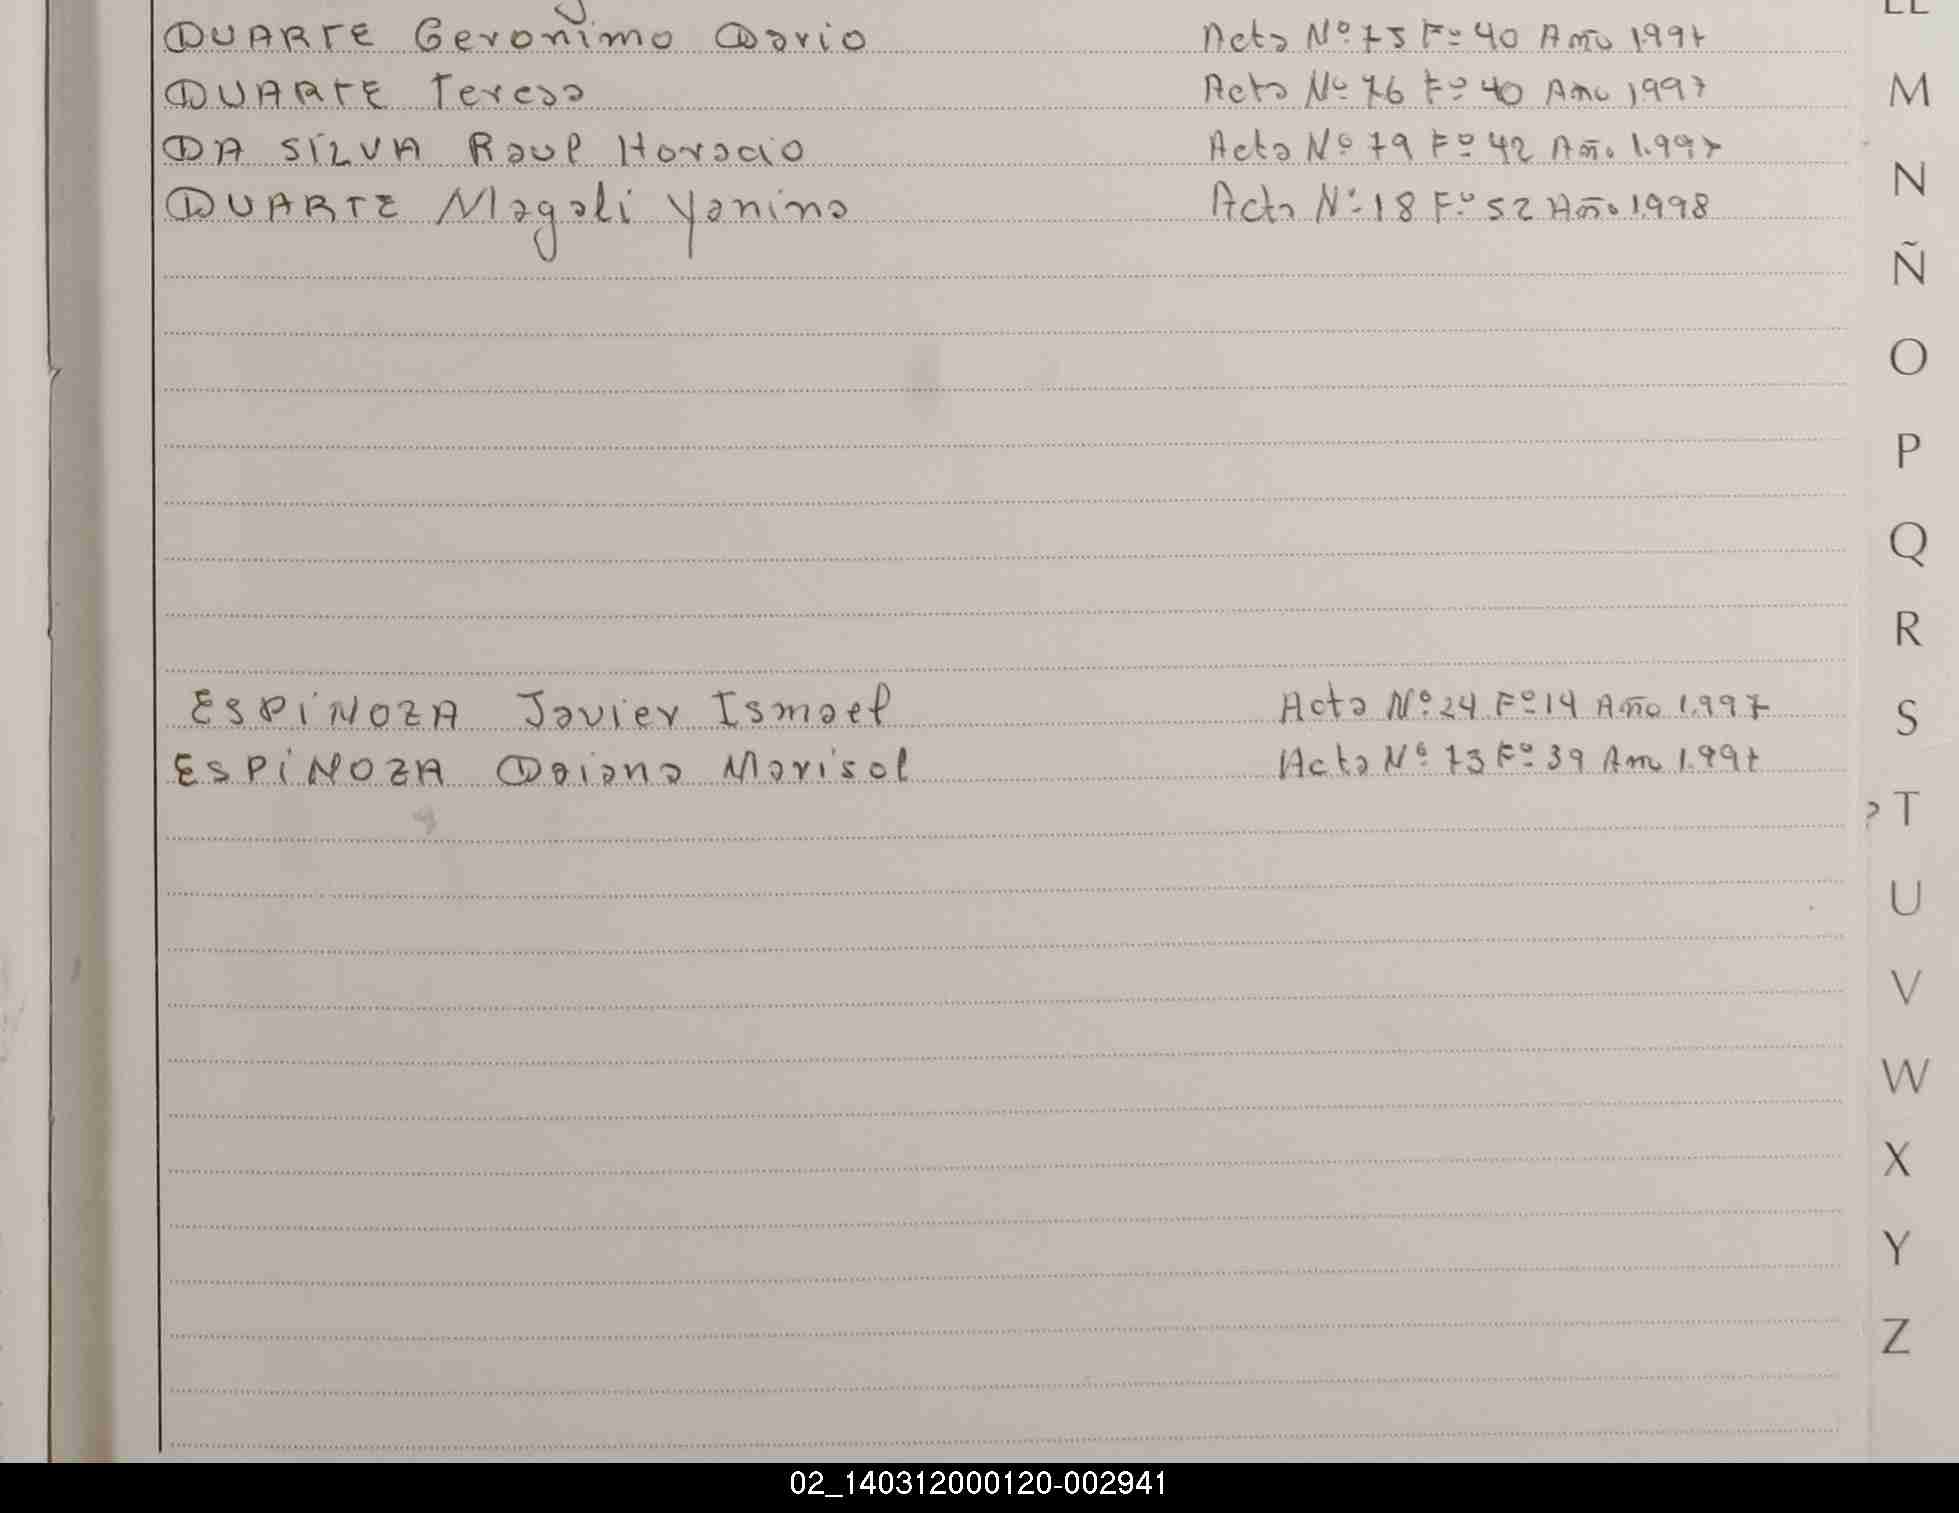 LL
DUARTE Geronimo Dario Acta Nº 75 Fº 40 Año 1997
DUARTE Teresa Acta Nº 76 Fº 40 Año 1997
DA SILVA Raul Horacio Acta Nº 79 Fº 42 Año 1.997
DUARTE Magali Yanina Acta Nº 18 Fº 52 Año 1998
ESPINOZA Javier Ismael Acta Nº 24 Fº 14 Año 1.997
ESPINOZA Daiana Marisol Acta Nº 73 Fº 39 Año 1.997
M
N
Ñ
O
P
Q
R
S
T
U
V
W
X
Y
Z
02_140312000120-002941